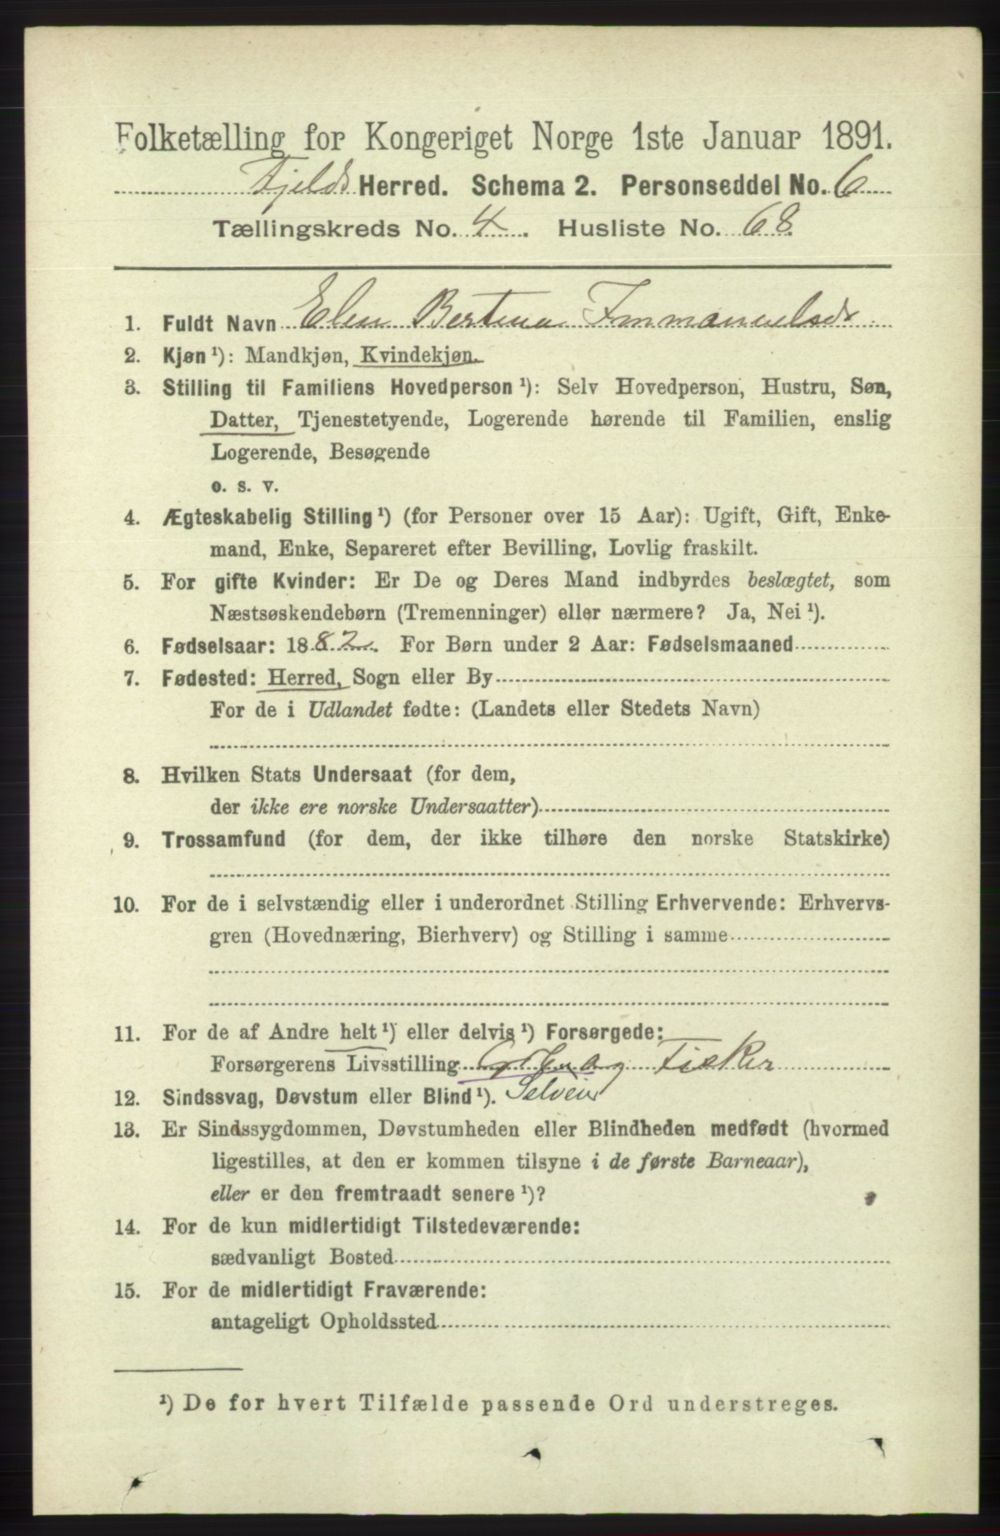 Folketælling for Kongeriget Norge 1ste Januar 1891.
Fjelds Herred. Schema 2. Personseddel No. 6
Tællingskreds No. 4. Husliste No. 68.
1. Fuldt Navn Elen Bertina Immanuelsdr
2. Kjøn ¹): Mandkjøn, Kvindekjøn.
3. Stilling til Familiens Hovedperson ¹): Selv Hovedperson, Hustru, Søn,
Datter, Tjenestetyende, Logerende hørende til Familien, enslig
Logerende, Besøgende
o. s. v.
4. Ægteskabelig Stilling ¹) (for Personer over 15 Aar): Ugift, Gift, Enke-
mand, Enke, Separeret efter Bevilling, Lovlig fraskilt.
5. For gifte Kvinder: Er De og Deres Mand indbyrdes beslægtet, som
Næstsøskendebørn (Tremenninger) eller nærmere? Ja, Nei ¹).
6. Fødselsaar: 1882. For Børn under 2 Aar: Fødselsmaaned
7. Fødested: Herred, Sogn eller By
For de i Udlandet fødte: (Landets eller Stedets Navn)
8. Hvilken Stats Undersaat (for dem,
der ikke ere norske Undersaatter)
9. Trossamfund (for dem, der ikke tilhøre den norske Statskirke)
10. For de i selvstændig eller i underordnet Stilling Erhvervende: Erhvervs-
gren (Hovednæring, Bierhverv) og Stilling i samme
11. For de af Andre helt ¹) eller delvis ¹) Forsørgede:
Forsørgerens Livsstilling og Fisker
12. Sindssvag, Døvstum eller Blind ¹). Selveier
13. Er Sindssygdommen, Døvstumheden eller Blindheden medfødt (hvormed
ligestilles, at den er kommen tilsyne i de første Barneaar),
eller er den fremtraadt senere ¹)?
14. For de kun midlertidigt Tilstedeværende:
sædvanligt Bosted
15. For de midlertidigt Fraværende:
antageligt Opholdssted
¹) De for hvert Tilfælde passende Ord understreges.